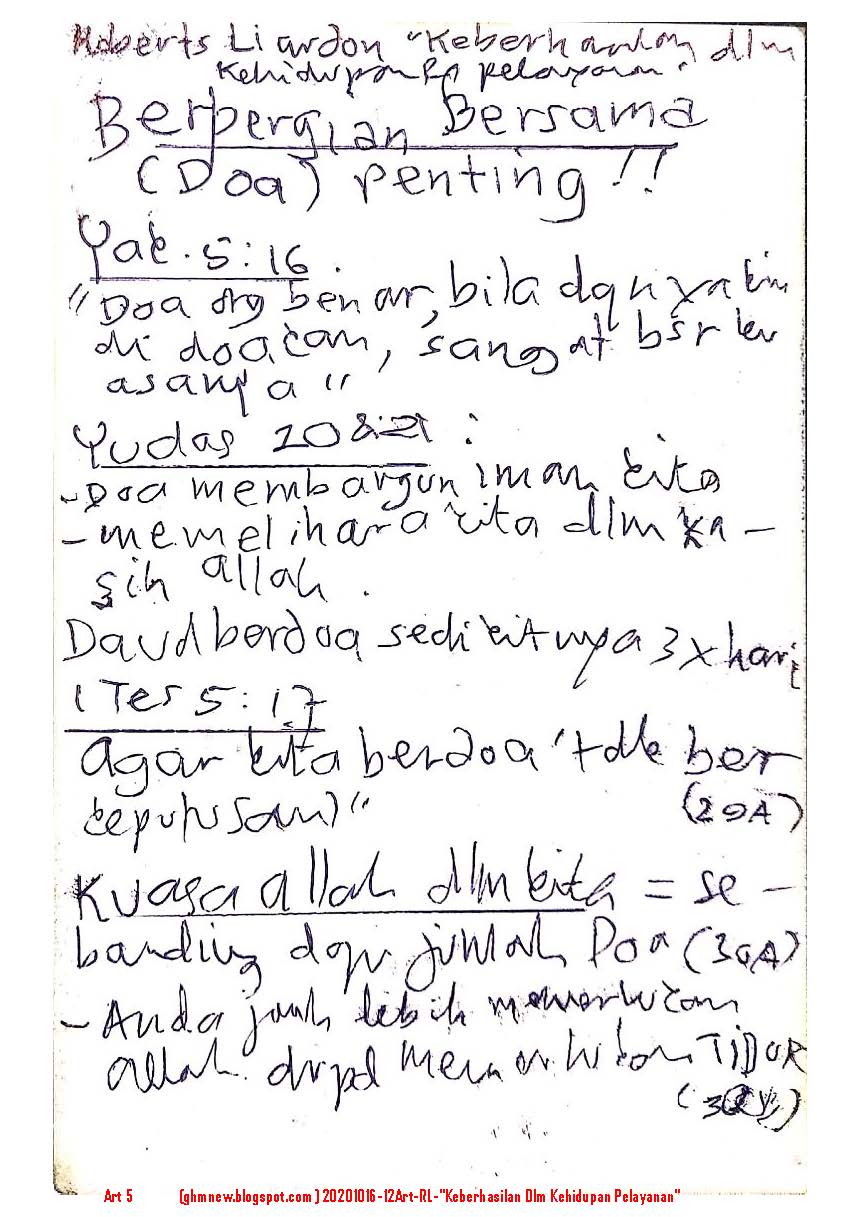 Roberts Liardon "Keberhasilan dlm
Kehidupan & pelayanan".
Berpergian Bersama
(Doa) penting !!
Yak. 5:16.
"Doa org benar, bila dgn yakin
di doakan, sangat bsr ku
asanya"
Yudas 20&21 :
-Doa membangun iman kita
-memelihara kita dlm ka-
sih allah.
Daud berdoa sedikitnya 3x hari
1 Tes 5:17
agar kita berdoa 'tdk ber
keputusan)"
(29A)
Kuasa allah dlm kita = se-
banding dgn jumlah Doa (30A)
- Anda jauh lebih memerlukan
allah drpd memerlukan TIDUR
Art 5 (ghmnew.blogspot.com) 20201016-12Art-RL-"Keberhasilan Dlm Kehidupan Pelayanan"